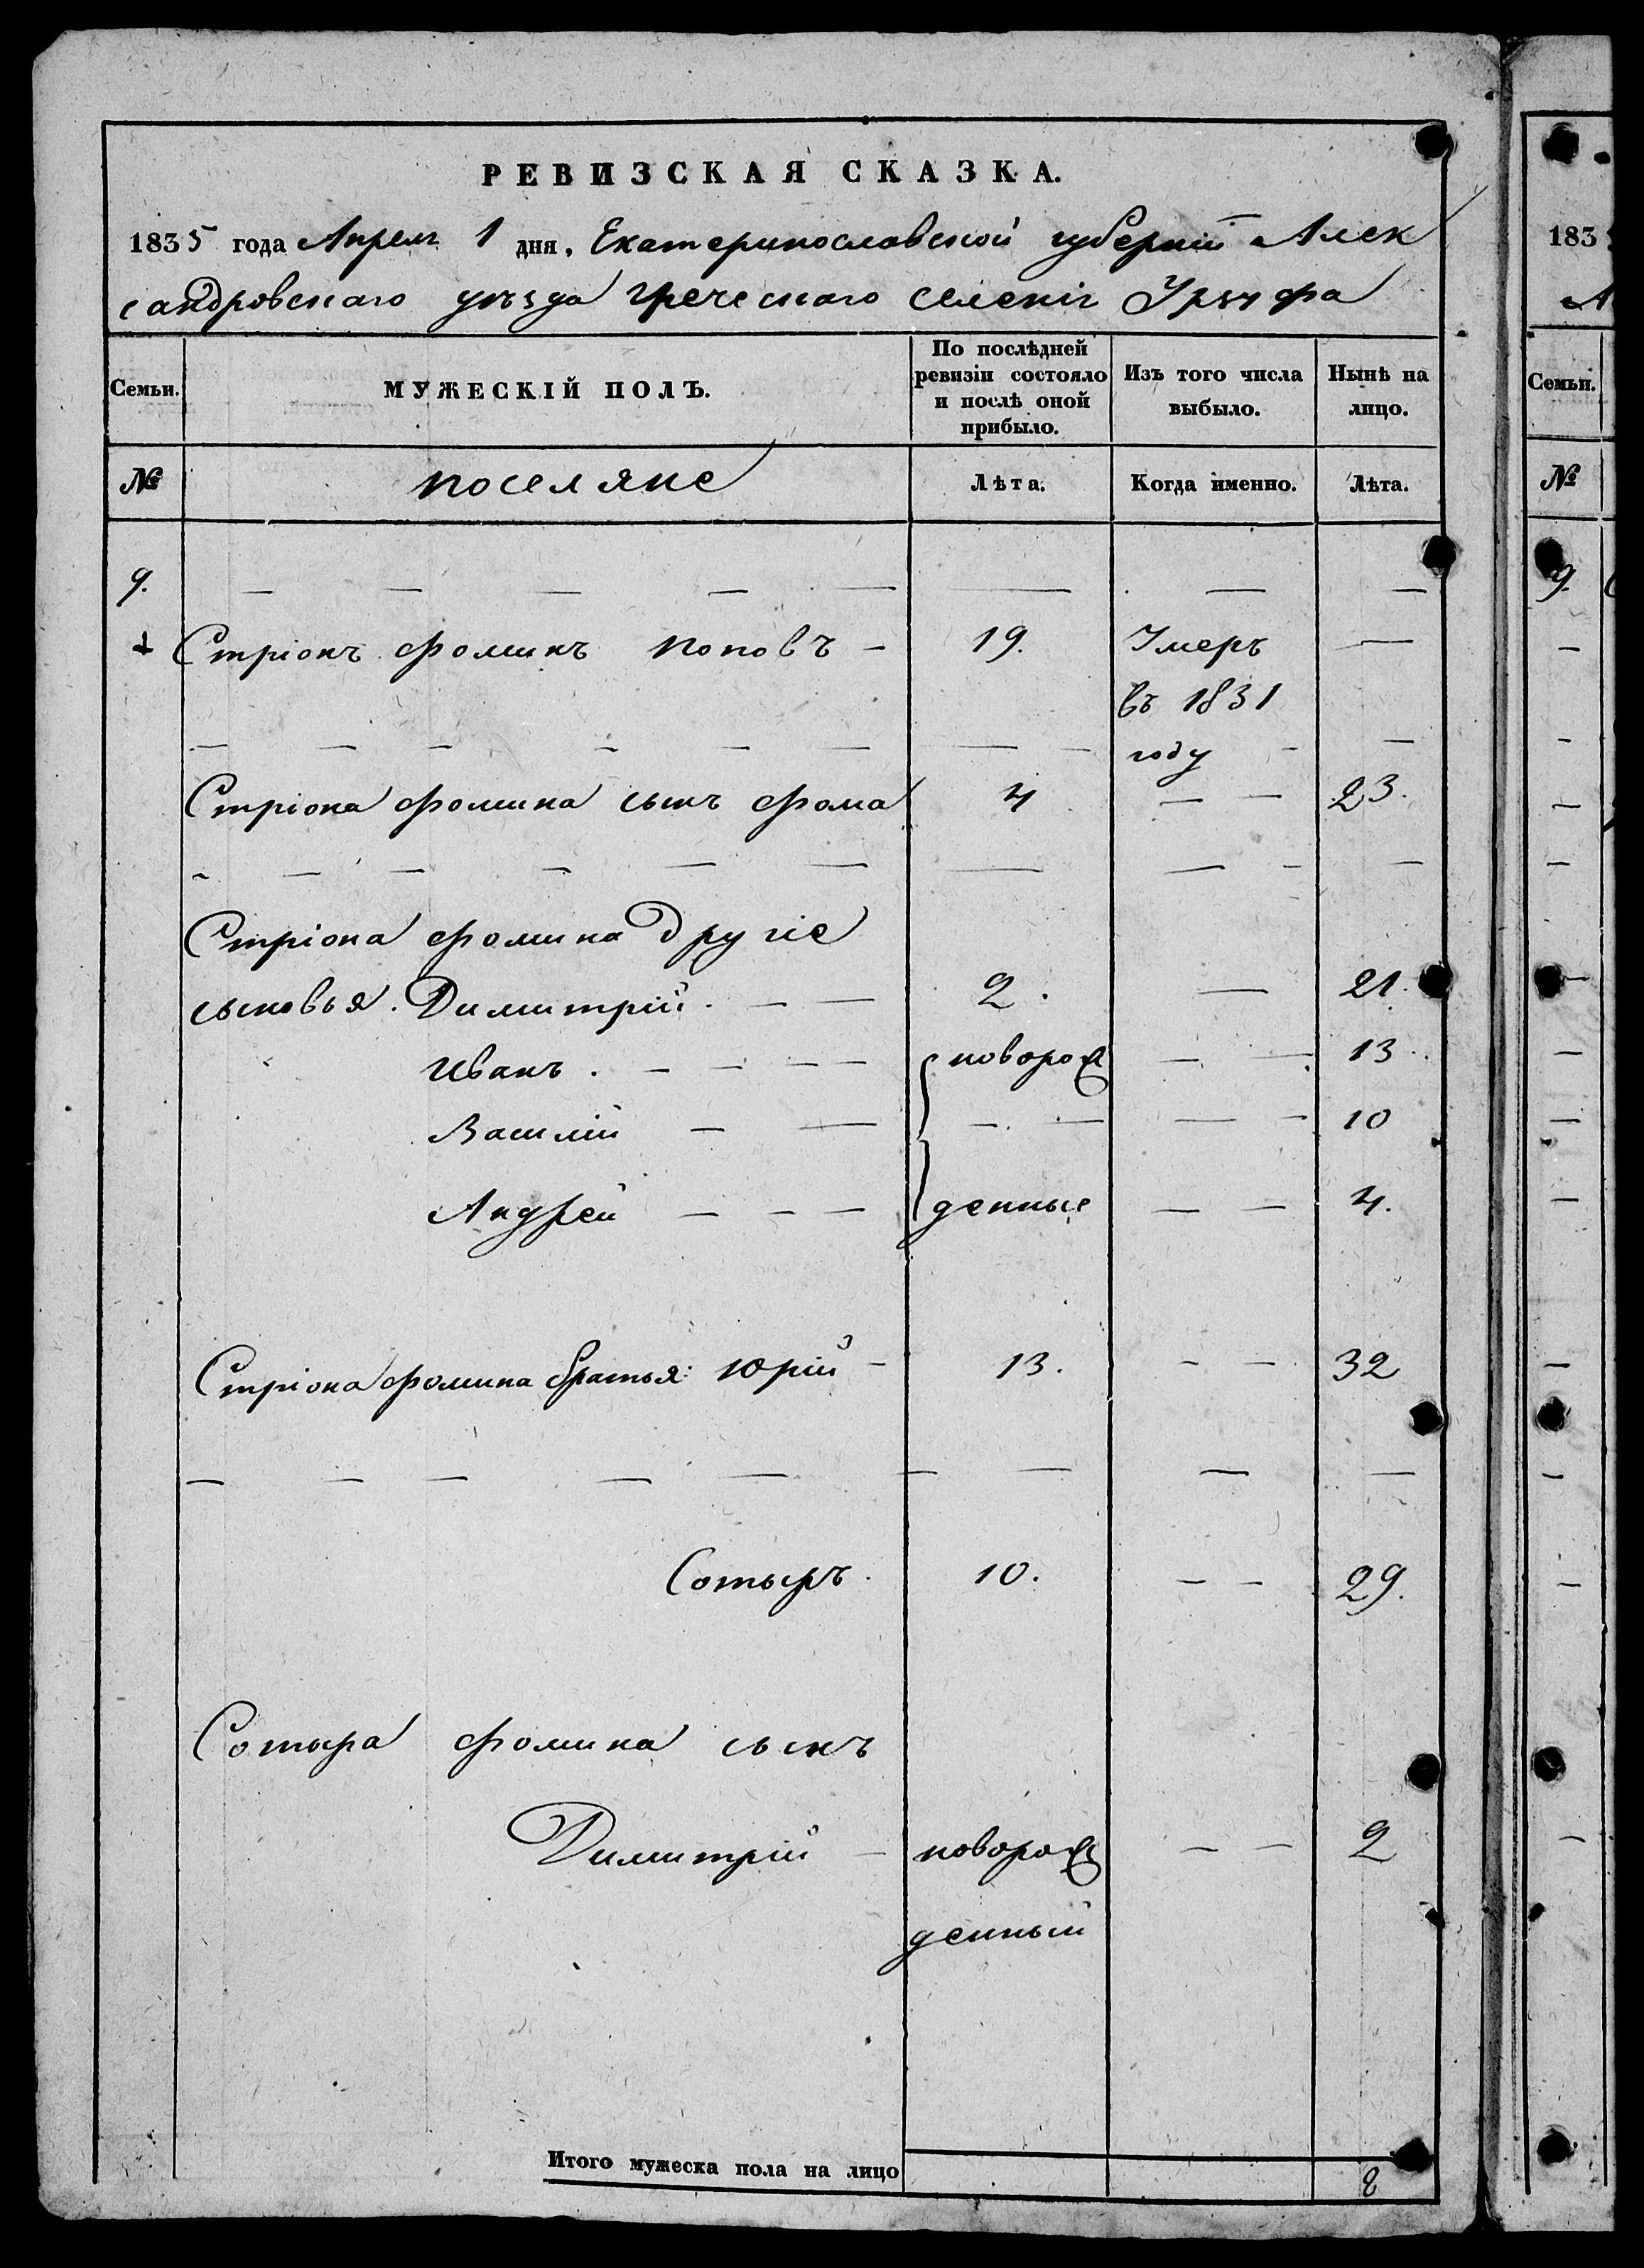 РЕВИЗСКАЯ СКАЗКА.
1835 года Апреля 1 дня, Екатеринославской губерніи Алек
сандровскаго уѣзда греческаго селенія Урзуфа
Семьи. МУЖЕСКІЙ ПОЛЪ. По послѣдней ревизіи состояло и послѣ оной прибыло. Изъ того числа выбыло. Нынѣ на лицо.
№ поселяне Лѣта. Когда именно. Лѣта.
9. — — — — — — — —
Стріонъ Фоминъ Поповъ — 19. Умеръ —
въ 1831
— — — — — — — — году — —
Стріона Фомина сынъ Фома 4 — — 23.
— — — — — — — — — —
Стріона Фомина другіе
сыновья. Димитрій. — — 2. — 21.
Иванъ. — — — — новорож — — 13.
Василій — — — — — — 10
Андрей — — — денные — — 4.
Стріона Фомина братья: Юрій — 13. — — 32
— — — — — — — — —
Сотыръ. 10. — — 29.
Сотыра Фомина сынъ
Димитрій — новорож — — 2
денный
Итого мужеска пола на лицо 8
183
А
Семьи.
№
9.